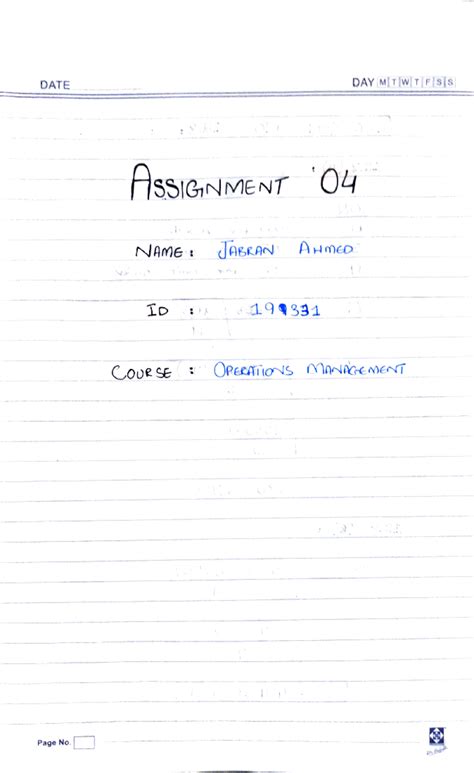 DATE DAY M T W T F S S
ASSIGNMENT '04
NAME : JABRAN AHMED
ID : 191331
COURSE : OPERATIONS MANAGEMENT
Page No.